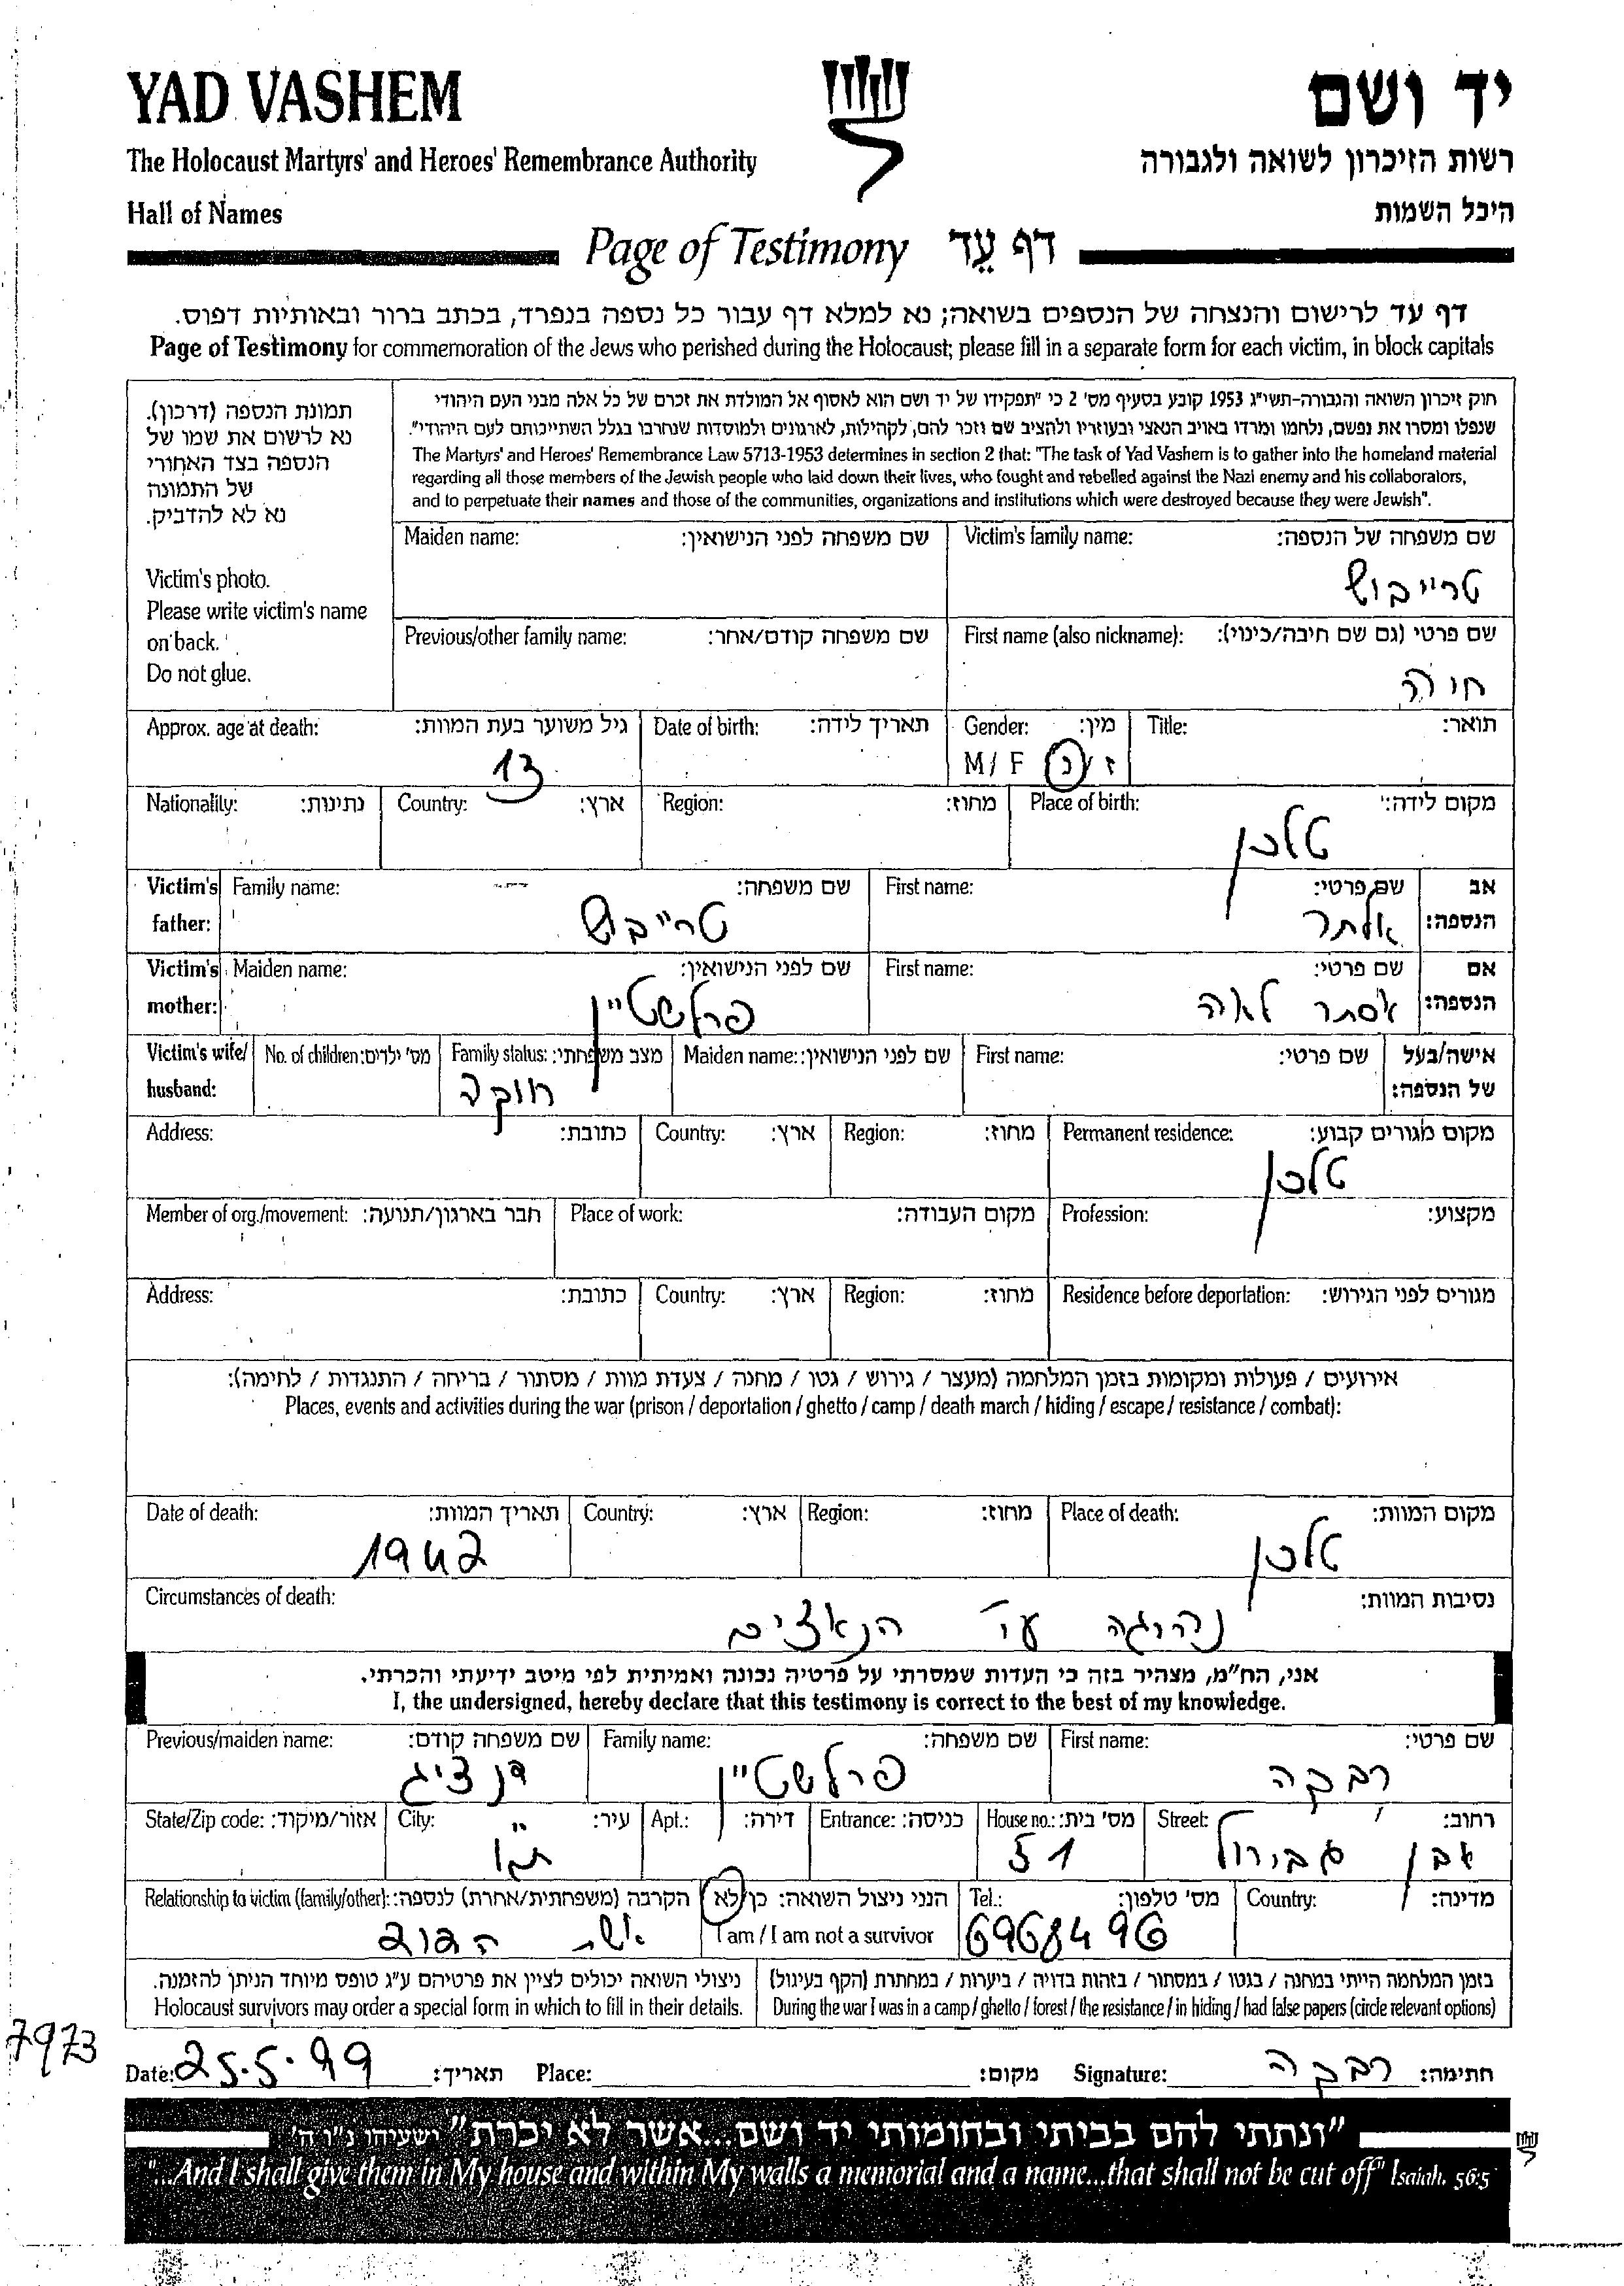 YAD VASHEM
יד ושם
The Holocaust Martyrs' and Heroes' Remembrance Authority
רשות הזיכרון לשואה ולגבורה
Hall of Names
היכל השמות
Page of Testimony דף עֵד
דף עד לרישום והנצחה של הנספים בשואה; נא למלא דף עבור כל נספה בנפרד, בכתב ברור ובאותיות דפוס.
Page of Testimony for commemoration of the Jews who perished during the Holocaust; please fill in a separate form for each victim, in block capitals
תמונת הנספה (דרכון).
נא לרשום את שמו של
הנספה בצד האחורי
של התמונה
נא לא להדביק.
Victim's photo.
Please write victim's name
on back.
Do not glue.
חוק זיכרון השואה והגבורה-תשי"ג 1953 קובע בסעיף מס' 2 כי "תפקידו של יד ושם הוא לאסוף אל המולדת את זכרם של כל אלה מבני העם היהודי
שנפלו ומסרו את נפשם, נלחמו ומרדו באויב הנאצי ובעוזריו ולהציב שם וזכר להם, לקהילות, לארגונים ולמוסדות שנחרבו בגלל השתייכותם לעם היהודי".
The Martyrs' and Heroes' Remembrance Law 5713-1953 determines in section 2 that: "The task of Yad Vashem is to gather into the homeland material
regarding all those members of the Jewish people who laid down their lives, who fought and rebelled against the Nazi enemy and his collaborators,
and to perpetuate their names and those of the communities, organizations and institutions which were destroyed because they were Jewish".
Maiden name: שם משפחה לפני הנישואין:
Victim's family name: שם משפחה של הנספה:
טרייבוש
Previous/other family name: שם משפחה קודם/אחר:
First name (also nickname): שם פרטי (גם שם חיבה/כינוי):
חיה
Approx. age at death: גיל משוער בעת המוות:
13
Date of birth: תאריך לידה:
Gender: מין:
M/ F ז / נ
Title: תואר:
Nationality: נתינות:
Country: ארץ:
Region: מחוז:
Place of birth: מקום לידה:
טלכן
Victim's father: Family name: שם משפחה:
טרייבוש
First name: שם פרטי:
אב הנספה:
אלתר
Victim's mother: Maiden name: שם לפני הנישואין:
פרלשטיין
First name: שם פרטי:
אם הנספה:
אסתר לאה
Victim's wife/ husband: No. of children: מס' ילדים:
Family status: מצב משפחתי:
רווקה
Maiden name: שם לפני הנישואין:
First name: שם פרטי:
אישה/בעל של הנספה:
Address: כתובת:
Country: ארץ:
Region: מחוז:
Permanent residence: מקום מגורים קבוע:
טלכן
Member of org./movement: חבר בארגון/תנועה:
Place of work: מקום העבודה:
Profession: מקצוע:
Address: כתובת:
Country: ארץ:
Region: מחוז:
Residence before deportation: מגורים לפני הגירוש:
אירועים / פעולות ומקומות בזמן המלחמה (מעצר / גירוש / גטו / מחנה / צעדת מוות / מסתור / בריחה / התנגדות / לחימה):
Places, events and activities during the war (prison / deportation / ghetto / camp / death march / hiding / escape / resistance / combat):
Date of death: תאריך המוות:
1942
Country: ארץ:
Region: מחוז:
Place of death: מקום המוות:
טלכן
Circumstances of death: נסיבות המוות:
נהרגה ע"י הנאצים
אני, הח"מ, מצהיר בזה כי העדות שמסרתי על פרטיה נכונה ואמיתית לפי מיטב ידיעתי והכרתי.
I, the undersigned, hereby declare that this testimony is correct to the best of my knowledge.
Previous/maiden name: שם משפחה קודם:
דנציג
Family name: שם משפחה:
פרלשטיין
First name: שם פרטי:
רבקה
State/Zip code: אזור/מיקוד:
City: עיר:
ת"א
Apt.: דירה:
Entrance: כניסה:
House no.: מס' בית:
51
Street: רחוב:
אבן גבירול
Relationship to victim (family/other): הקרבה (משפחתית/אחרת) לנספה:
אשת הדוד
הנני ניצול השואה: כן/לא
I am / I am not a survivor
Tel.: מס' טלפון:
6968496
Country: מדינה:
ניצולי השואה יכולים לציין את פרטיהם ע"ג טופס מיוחד הניתן להזמנה.
Holocaust survivors may order a special form in which to fill in their details.
בזמן המלחמה הייתי במחנה / בגטו / במסתור / בזהות בדויה / ביערות / במחתרת (הקף בעיגול)
During the war I was in a camp / ghetto / forest / the resistance / in hiding / had false papers (circle relevant options)
7973
Date: 25.5.99 תאריך:
Place: מקום:
Signature: רבקה חתימה:
"ונתתי להם בביתי ובחומותי יד ושם...אשר לא יכרת" ישעיהו נ"ו ה'
"...And I shall give them in My house and within My walls a memorial and a name...that shall not be cut off" Isaiah. 56:5